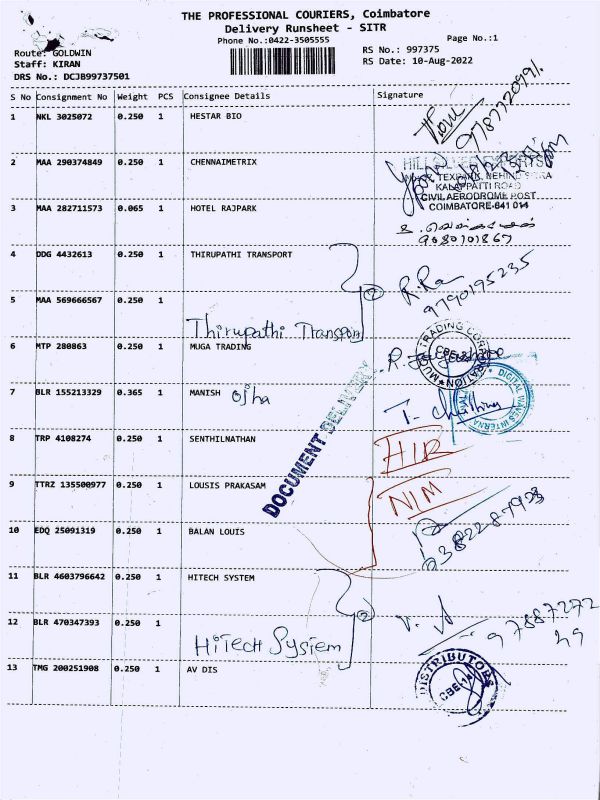 THE PROFESSIONAL COURIERS, Coimbatore
Delivery Runsheet - SITR
Phone No.:0422-3505555
Page No.:1
Route: GOLDWIN
RS No.: 997375
Staff: KIRAN
RS Date: 10-Aug-2022
DRS No.: DCJB99737501
S No Consignment No Weight PCS Consignee Details Signature
1 NKL 3025072 0.250 1 HESTAR BIO
2 MAA 290374849 0.250 1 CHENNAIMETRIX
KALAPPATTI ROAD
CIVIL AERODROME POST
COIMBATORE-641 014
3 MAA 282711573 0.065 1 HOTEL RAJPARK
9080101867
4 DDG 4432613 0.250 1 THIRUPATHI TRANSPORT
2 R.Ra
9790195235
5 MAA 569666567 0.250 1
Thirupathi Transport
6 MTP 280863 0.250 1 MUGA TRADING
MUGA TRADING CORPORATION
CBE
7 BLR 155213329 0.365 1 MANISH Ojha
DIGITAL WAVES INTERNA
DOCUMENT DELIVERY
8 TRP 4108274 0.250 1 SENTHILNATHAN
H/R
9 TTRZ 135500977 0.250 1 LOUSIS PRAKASAM
NIM
10 EDQ 25091319 0.250 1 BALAN LOUIS
11 BLR 4603796642 0.250 1 HITECH SYSTEM
12 BLR 470347393 0.250 1
2
97887272
29
HiTech System
13 TMG 200251908 0.250 1 AV DIS
DISTRIBUTORS
CBE-14